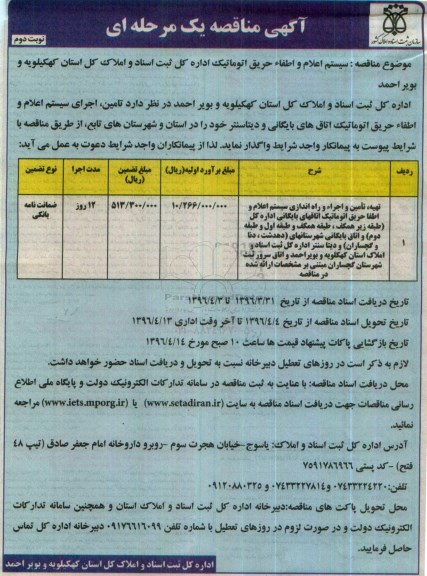 آگهی مناقصه یک مرحله ای
نوبت دوم
سازمان ثبت اسناد و املاک کشور
موضوع مناقصه : سیستم اعلام و اطفاء حریق اتوماتیک اداره کل ثبت اسناد و املاک کل استان کهکیلویه و
بویر احمد
اداره کل ثبت اسناد و املاک کل استان کهکیلویه و بویر احمد در نظر دارد تامین، اجرای سیستم اعلام و
اطفاء حریق اتوماتیک اتاق های بایگانی و دیتاسنتر خود را در استان و شهرستان های تابع، از طریق مناقصه با
شرایط پیوست به پیمانکار واجد شرایط واگذار نماید. لذا از پیمانکاران واجد شرایط دعوت به عمل می آید:
ردیف شرح مبلغ برآورد اولیه(ریال) مبلغ تضمین (ریال) مدت اجرا نوع تضمین
۱ تهیه، تأمین و اجراء و راه اندازی سیستم اعلام و ۱۰/۲۶۶/۰۰۰/۰۰۰ ۵۱۳/۳۰۰/۰۰۰ ۱۲ روز ضمانت نامه بانکی
اطفا حریق اتوماتیک اتاقهای بایگانی اداره کل
(طبقه زیر همکف ، طبقه همکف و طبقه اول و طبقه
دوم) و اتاق بایگانی شهرستانهای (دهدشت ، دنا
و گچساران) و دیتا سنتر اداره کل ثبت اسناد و
املاک استان کهکلویه و بویراحمد و اتاق سرور ثبت
شهرستان گچساران مبتنی بر مشخصات ارائه شده
در مناقصه
تاریخ دریافت اسناد مناقصه از تاریخ ۱۳۹۶/۳/۳۱ تا ۱۳۹۶/۴/۳
تاریخ تحویل اسناد مناقصه از تاریخ ۱۳۹۶/۴/۴ تا آخر وقت اداری ۱۳۹۶/۴/۱۳
تاریخ بازگشایی پاکات پیشنهاد قیمت ها ساعت ۱۰ صبح مورخ ۱۳۹۶/۴/۱۴
لازم به ذکر است در روزهای تعطیل دبیرخانه نسبت به تحویل و دریافت اسناد حضور خواهد داشت.
محل دریافت اسناد مناقصه: با عنایت به ثبت مناقصه در سامانه تدارکات الکترونیک دولت و پایگاه ملی اطلاع
رسانی مناقصات جهت دریافت اسناد مناقصه به سایت (www.setadiran.ir) یا (www.iets.mporg.ir) مراجعه
نمائید.
آدرس اداره کل ثبت اسناد و املاک: یاسوج-خیابان هجرت سوم -روبرو داروخانه امام جعفر صادق (تیپ ۴۸
فتح) -کد پستی ۷۵۹۱۷۸۶۹۶۶
تلفن: ۰۷۴۳۳۲۲۴۲۲۰ و ۰۷۴۳۳۲۲۷۸۱۴ و ۰۹۱۲۰۸۸۰۳۲۵
محل تحویل پاکت های مناقصه:دبیرخانه اداره کل ثبت اسناد و املاک استان و همچنین سامانه تدارکات
الکترونیک دولت و در صورت لزوم در روزهای تعطیل با شماره تلفن ۰۹۱۷۶۶۱۶۰۹۹ دبیرخانه اداره کل تماس
حاصل فرمایید.
اداره کل ثبت اسناد و املاک کل استان کهکیلویه و بویر احمد